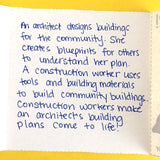 An architect designs buildings
for the community. She
creates blueprints for others
to understand her plan.
A construction worker uses
tools and building materials
to build community buildings
Construction workers make
an architects building
plans come to life!